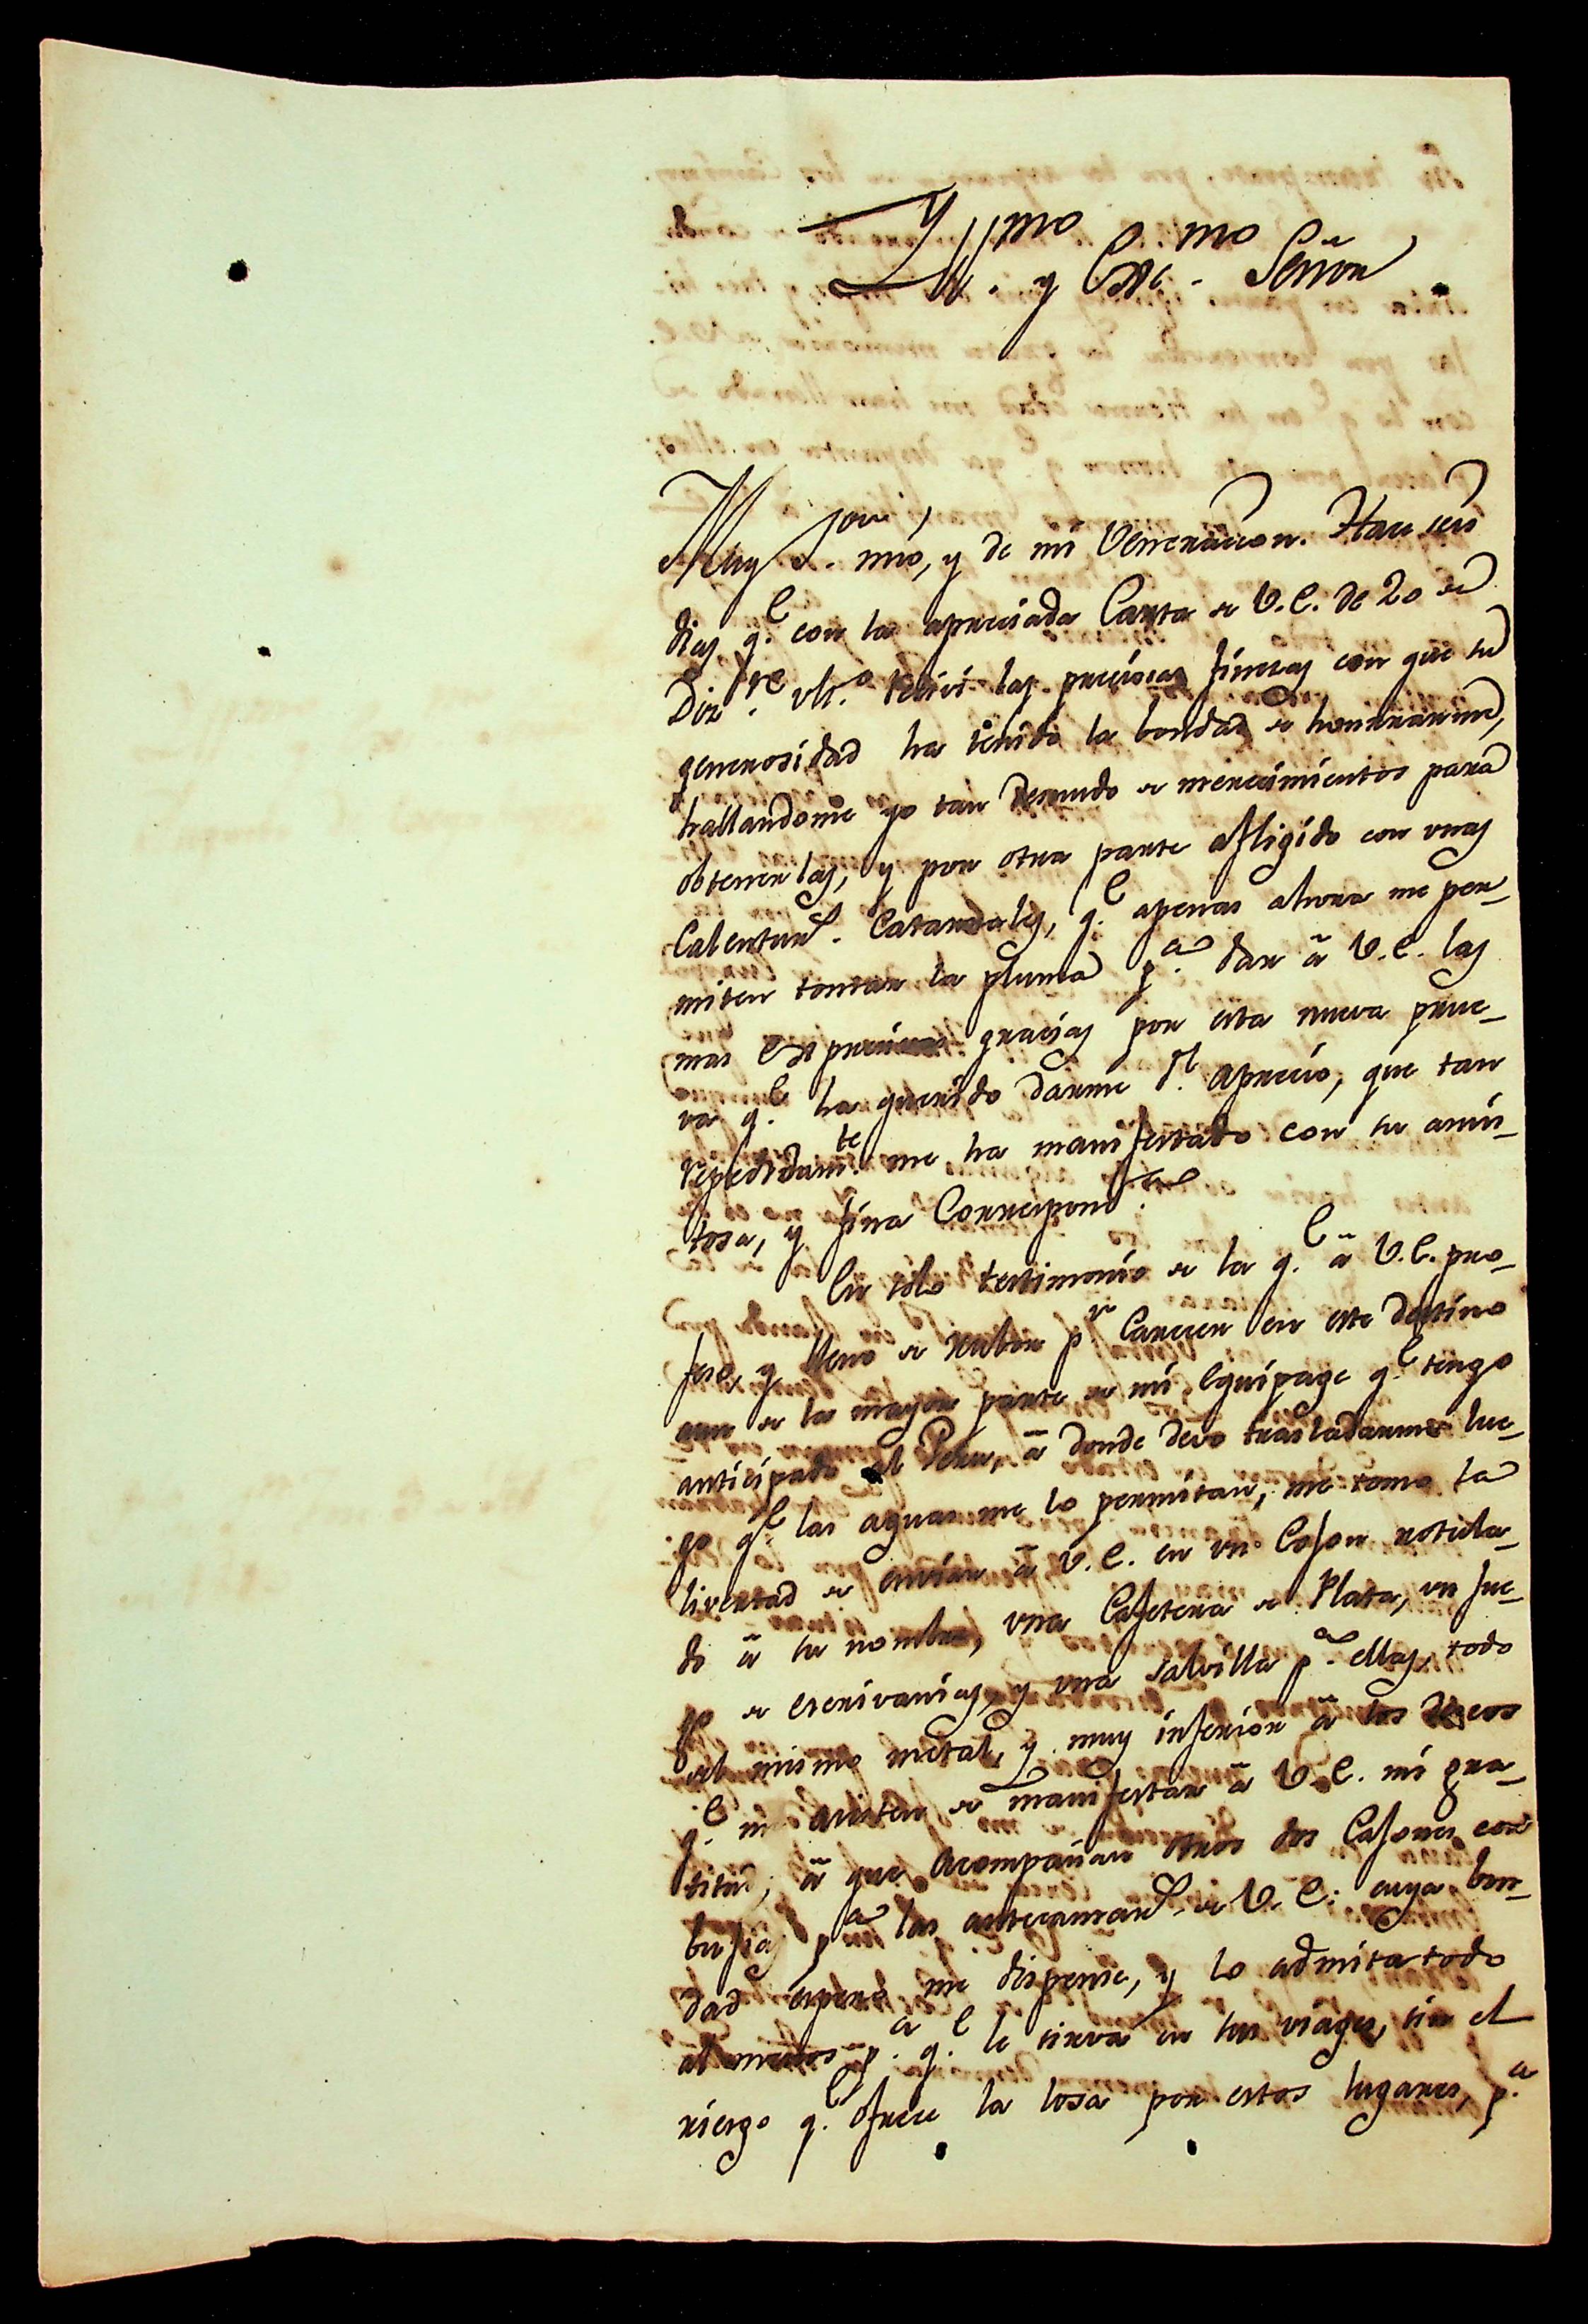 Yll.mo y Exc.mo Señor
Muy S.or mio, y de mi Veneracion. Hace seis
dias q.e con la apreciada Carta de V.E. de 20 de
Diz.re ult.o recivi las preciosas finezas con que su
generosidad ha tenido la bondad de honrrarme,
hallandome yo tan desnudo de merecimientos para
obtenerlas, y por otra parte afligido con unas
Calentur.s Catarrales, q.e apenas ahora me per-
miten tomar la pluma p.a dar â V.E. las
mas expresivas gracias por esta nueva prue-
va q.e ha querido darme d.l aprecio, que tan
repetidam.te me ha manifestado con su amis-
tosa, y fina Correspond.cia
En solo testimonio de la q.e â V.E. pro-
feso, y lleno de rubor p.r Carecer en este destino
aun de la mayor parte de mi Equipage q.e tengo
anticipado al Peru, â donde devo trasladarme lue-
go q.e las aguas me lo permitan, me tomo la
livertad de enviar â V.E. en un Cajon rotula-
do â su nombre, una Cafetera de Plata, un jue-
go de escrivanias, y una salvilla p.a ellas, todo
del mismo metal, y muy inferior â los deceos
q.e me asisten de manifestar â V.E. mi gra-
titud; â que acompañan otros dos Cajones con
bujias p.a las antecamar.s de V.E. cuya bon-
dad espero me dispense, y lo admita todo
al menos p.a q.e le sirva en sus viages, sin el
riesgo q.e ofrece la losa por estos lugares, p.a